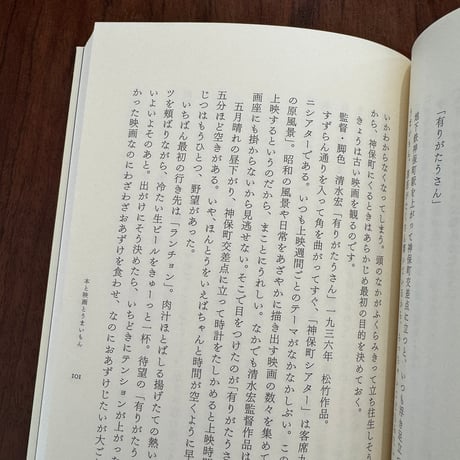 「有りがたうさん」
地下鉄神保町駅を上がって神保町交差点に立つと、いつも浮き足立
いかわからなくなってしまう。頭のなかがふくらみきって立ち往生しそう
から、神保町にくるときはあらかじめ最初の目的を決めておく。
きょうは古い映画を観るのです。
監督・脚色　清水宏「有りがたうさん」一九三六年、松竹作品。
すずらん通りを入って角を曲がってすぐ、「神保町シアター」は客席九
ニシアターである。いつも上映週間ごとのテーマがなかなかしぶい。この
の原風景」。昭和の風景や日常をあざやかに描き出す映画の数々を集めて
上映するというのだから、まことにうれしい。なかでも清水宏監督作品は
画座にも掛からないから見逃せない。そこで目をつけたのが「有りがたうさ
五月晴れの昼下がり、神保町交差点に立って時計をたしかめると上映時
五分ほど空きがある。いや、ほんとうをいえばちゃんと時間が空くように早
じつはもうひとつ、野望があった。
いちばん最初の行き先は「ランチョン」。肉汁ほとばしる揚げたての熱い
ツを頬ばりながら、冷たい生ビールをきゅーっと一杯。待望の「有りがたう
いよいよそのあと。出がけにそう決めたら、いちどきにテンションが上がった
かった映画なのにわざわざおあずけを食わせ、なのにおあずけじたいが大ご
本と映画とうまいもん
101